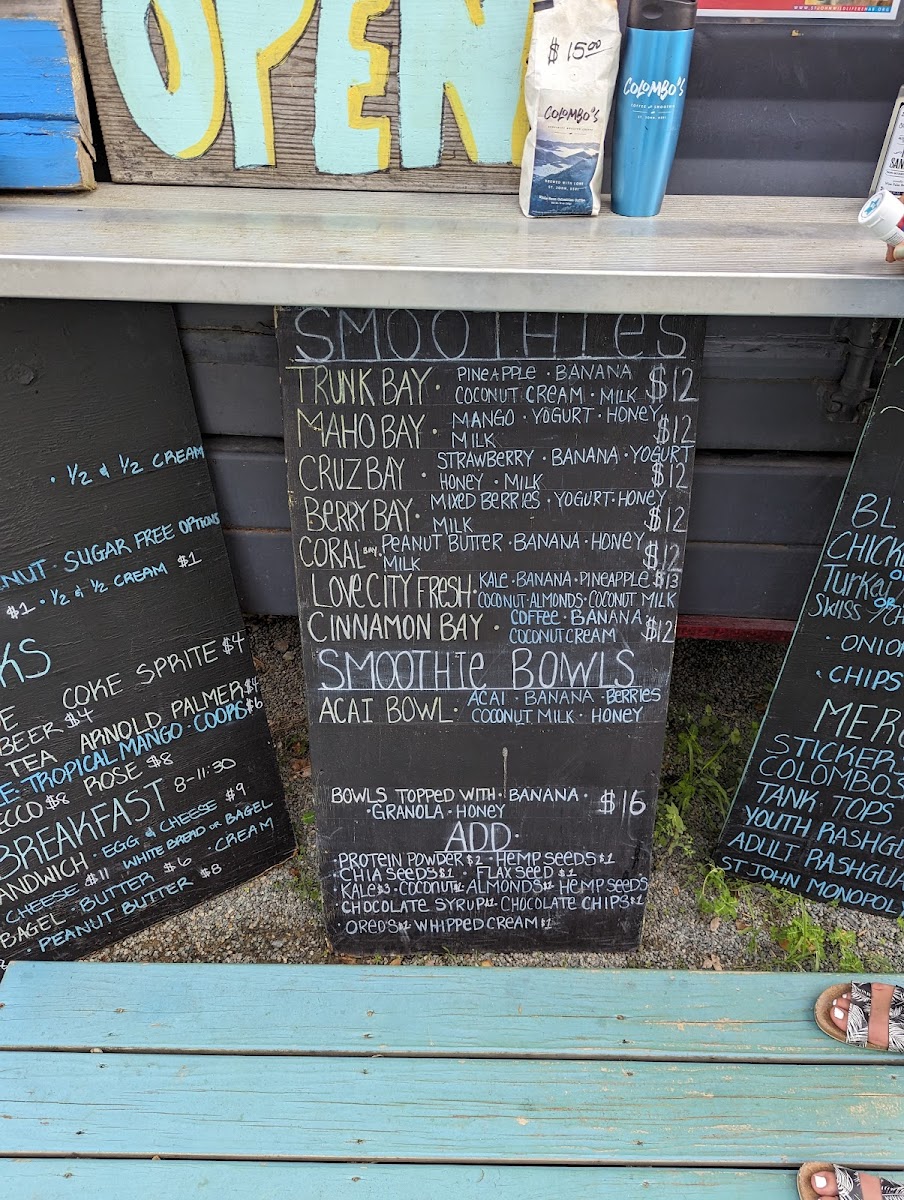 OPEN
$15.00
COLOMBO'S
COLOMBO'S
COFFEE & SMOOTHIES
ST. JOHN, USVI
BREWED WITH LOVE
ST. JOHN, USVI
SAN
· 1/2 & 1/2 CREAM
NUT · SUGAR FREE OPTIONS
$1 · 1/2 & 1/2 CREAM $1
KS
E COKE SPRITE $4
BEER $4
TEA ARNOLD PALMER $4
E · TROPICAL MANGO · COOPS $6
ECCO $8 ROSE $8
BREAKFAST 8-11:30
ANDWICH · EGG & CHEESE $9
CHEESE $11 WHITE BREAD OR BAGEL
BAGEL · BUTTER $6 · CREAM
· PEANUT BUTTER $8
SMOOTHIES
TRUNK BAY · PINEAPPLE · BANANA
COCONUT CREAM · MILK $12
MAHO BAY · MANGO · YOGURT · HONEY
MILK $12
CRUZ BAY · STRAWBERRY · BANANA · YOGURT
HONEY · MILK $12
BERRY BAY · MIXED BERRIES · YOGURT · HONEY
MILK $12
CORAL BAY · PEANUT BUTTER · BANANA · HONEY
MILK $12
LOVE CITY FRESH · KALE · BANANA · PINEAPPLE $13
COCONUT · ALMONDS · COCONUT MILK
CINNAMON BAY · COFFEE · BANANA
COCONUT CREAM $12
SMOOTHIE BOWLS
ACAI BOWL · ACAI · BANANA · BERRIES
COCONUT MILK · HONEY
BOWLS TOPPED WITH · BANANA · $16
· GRANOLA · HONEY
ADD ·
· PROTEIN POWDER $2 · HEMP SEEDS $1
CHIA SEEDS $1 · FLAX SEED $1
· KALE $3 · COCONUT $1 ALMONDS $1 HEMP SEEDS
· CHOCOLATE SYRUP $1 CHOCOLATE CHIPS $1
· OREOS $2 WHIPPED CREAM $1
BL
CHICKE
OR
TURKEY
OR
SWISS / CH
· ONION
· CHIPS
MERC
STICKER
COLOMBOS
TANK TOPS
YOUTH RASHGU
ADULT RASHGUA
ST JOHN MONOPOLY